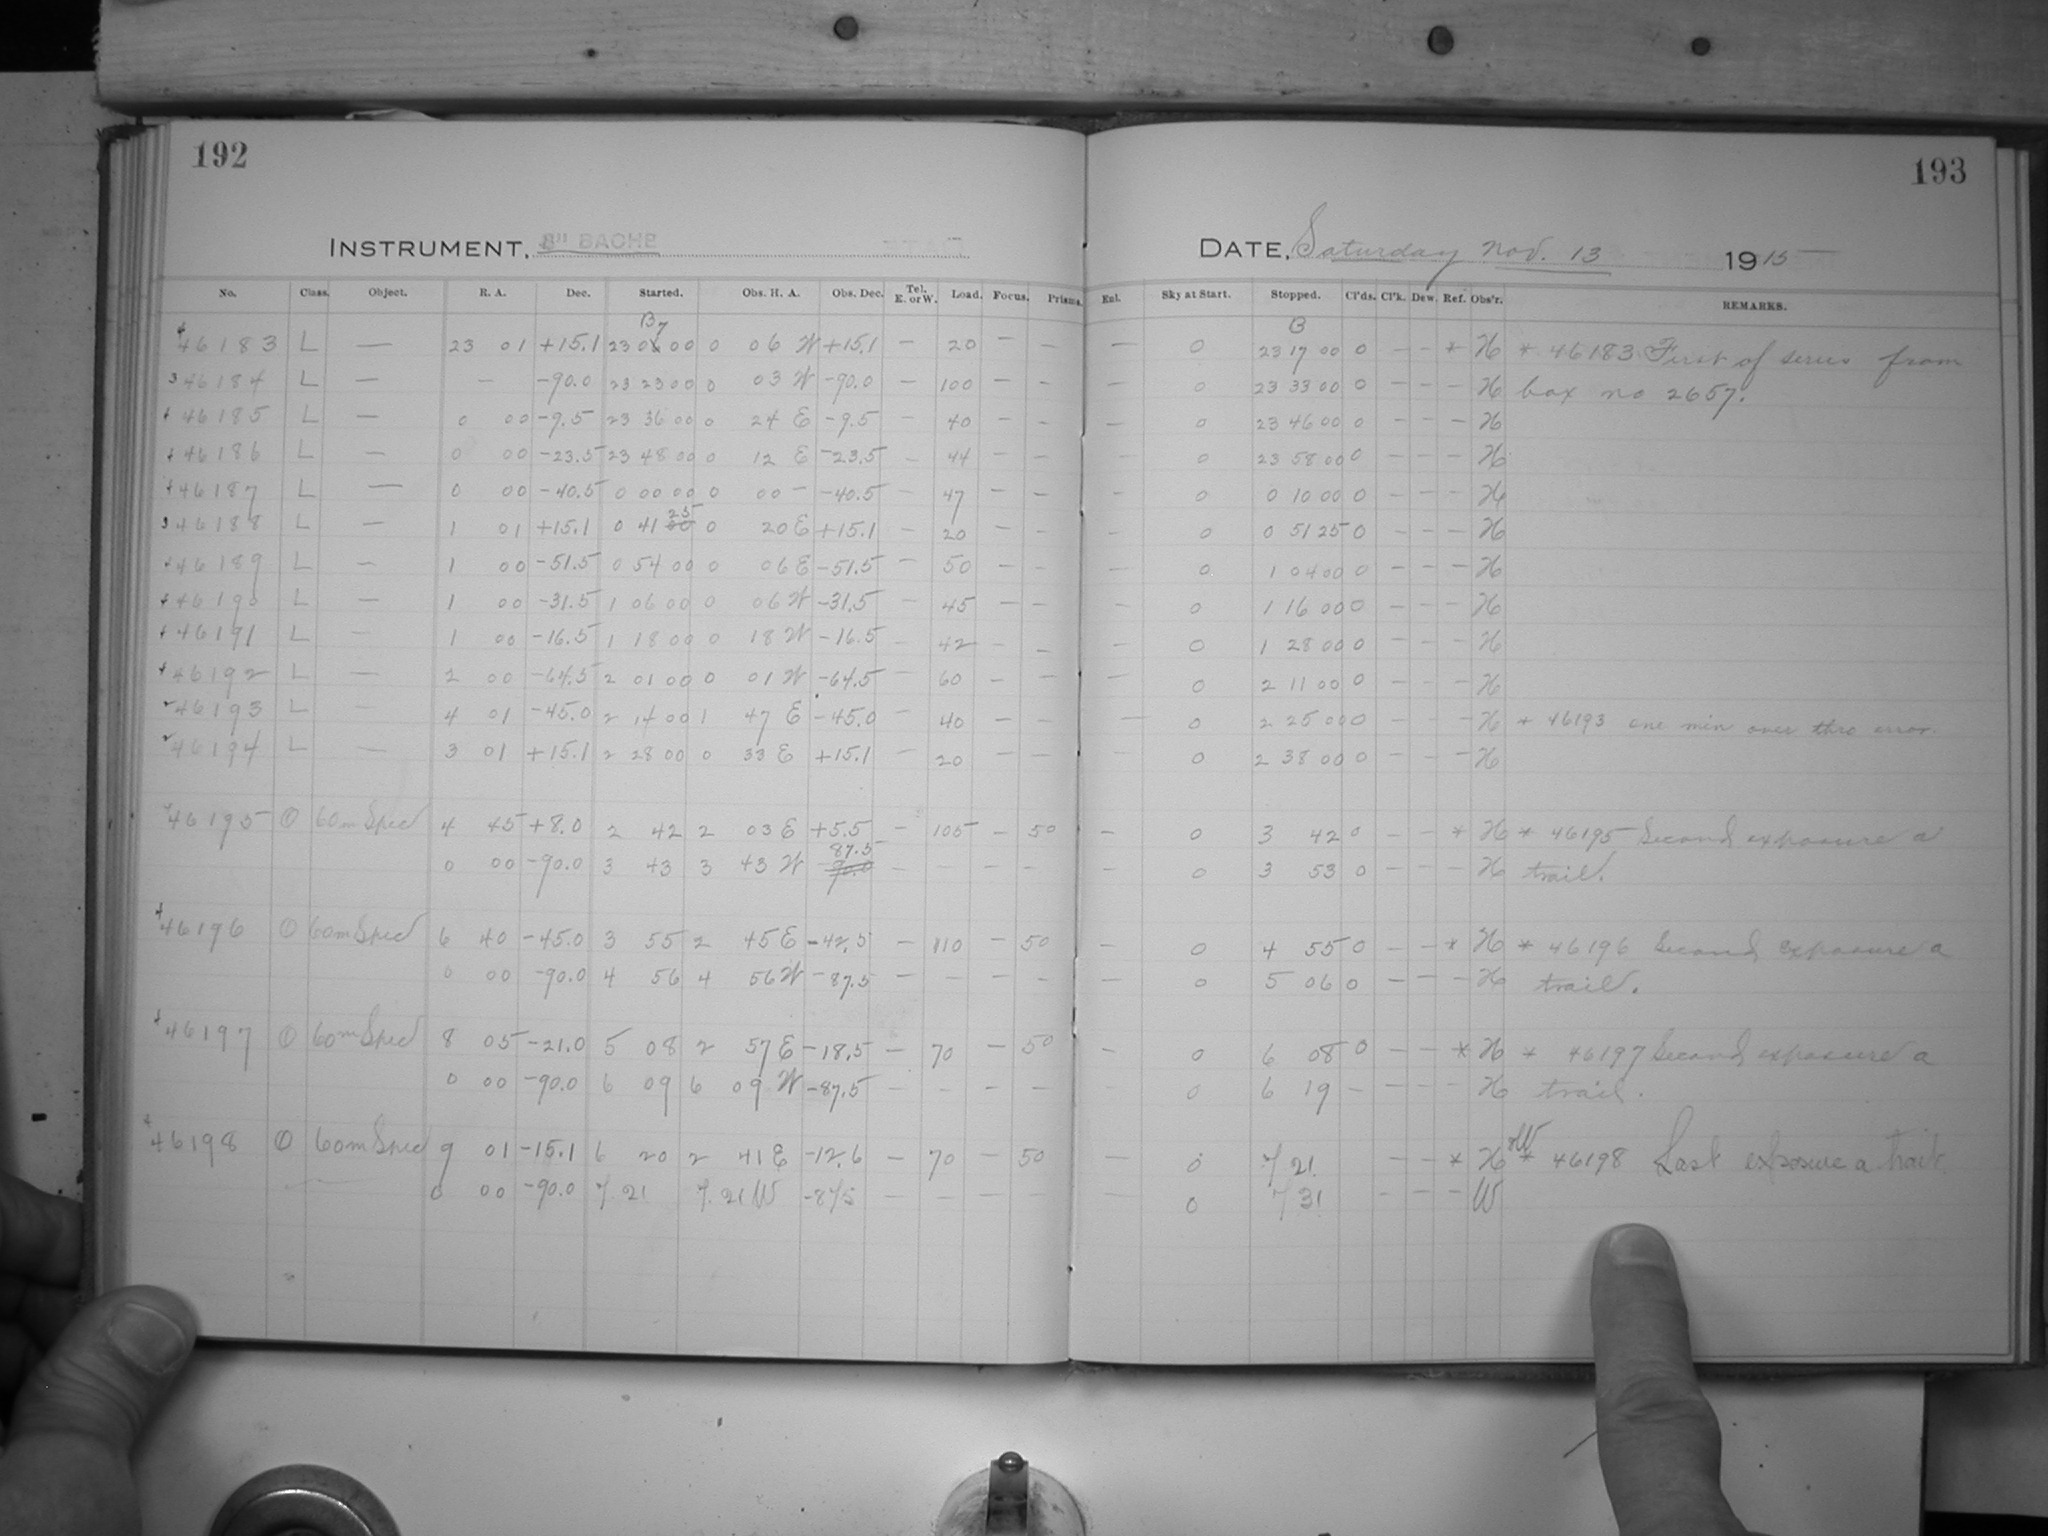 192
193
INSTRUMENT, 8" BACHE
DATE, Saturday Nov. 13 1915
No. Class. Object. R. A. Dec. Started. Obs. H. A. Obs. Dec. Tel. E. or W. Load. Focus. Prisms. Enl. Sky at Start. Stopped. Cl'ds. Cl'k. Dew. Ref. Obs'r. REMARKS.
46183 L — 23 01 +15.1 23 07 00 0 06 W +15.1 — 20 — — — 0 23 17 00 0 — — * H * 46183 First of series from
46184 L — — -90.0 23 23 00 0 03 W -90.0 — 100 — — — 0 23 33 00 0 — — — H box no 2657.
46185 L — 0 00 -9.5 23 36 00 0 24 E -9.5 — 40 — — — 0 23 46 00 0 — — — H
46186 L — 0 00 -23.5 23 48 00 0 12 E -23.5 — 44 — — — 0 23 58 00 0 — — — H
46187 L — 0 00 -40.5 0 00 00 0 00 — -40.5 — 47 — — — 0 0 10 00 0 — — — H
46188 L — 1 01 +15.1 0 41 25 0 20 E +15.1 — 20 — — — 0 0 51 25 0 — — — H
46189 L — 1 00 -51.5 0 54 00 0 06 E -51.5 — 50 — — — 0 1 04 00 0 — — — H
46190 L — 1 00 -31.5 1 06 00 0 06 W -31.5 — 45 — — — 0 1 16 00 0 — — — H
46191 L — 1 00 -16.5 1 18 00 0 18 W -16.5 — 42 — — — 0 1 28 00 0 — — — H
46192 L — 2 00 -64.5 2 01 00 0 01 W -64.5 — 60 — — — 0 2 11 00 0 — — — H
46193 L — 4 01 -45.0 2 14 00 1 47 E -45.0 — 40 — — — 0 2 25 00 0 — — — H * 46193 one min over thro error.
46194 L — 3 01 +15.1 2 28 00 0 33 E +15.1 — 20 — — — 0 2 38 00 0 — — — H
46195 O 60m Spec 4 45 +8.0 2 42 2 03 E +5.5 — 105 — 50 — 0 3 42 0 — — * H * 46195 Second exposure a
0 00 -90.0 3 43 3 43 W 87.5 — — — — — 0 3 53 0 — — — H trail.
46196 O 60m Spec 6 40 -45.0 3 55 2 45 E -42.5 — 110 — 50 — 0 4 55 0 — — * H * 46196 Second exposure a
0 00 -90.0 4 56 4 56 W -87.5 — — — — — 0 5 06 0 — — — H trail.
46197 O 60m Spec 8 05 -21.0 5 08 2 57 E -18.5 — 70 — 50 — 0 6 08 0 — — * H * 46197 Second exposure a
0 00 -90.0 6 09 6 09 W -87.5 — — — — — 0 6 19 — — — — H trail.
46198 O 60m Spec 9 01 -15.1 6 20 2 41 E -12.6 — 70 — 50 — 0 7 21 — — * H W * 46198 Last exposure a trail
0 00 -90.0 7 21 7 21 W -87.5 — — — — — 0 7 31 — — — W